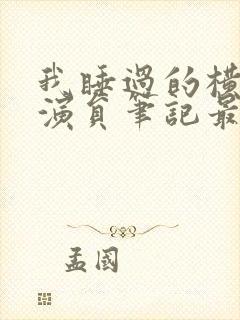 我睡過的橫
演員筆記最
孟國